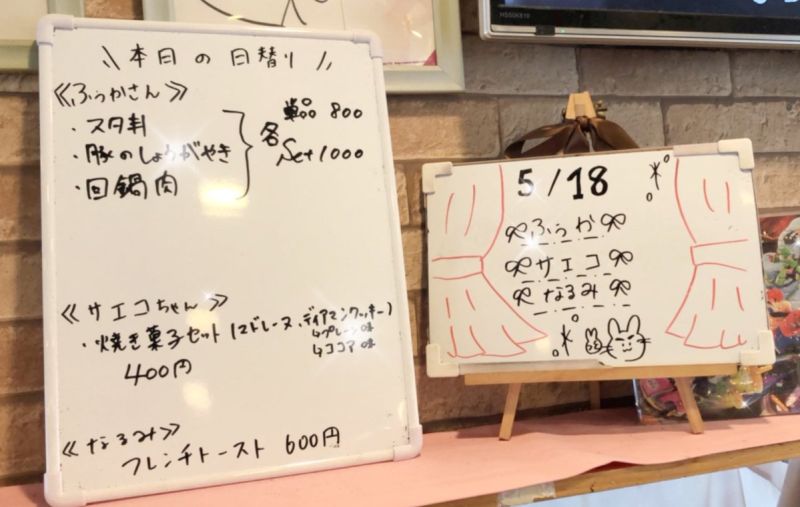 本日の日替り
≪ふぅかさん≫
・スタ丼
・豚のしょうがやき
・回鍋肉
各
単品 800
Set 1000
≪サエコちゃん≫
・焼き菓子セット(マドレーヌ、ディアマンクッキー)
↳プレーン味
↳ココア味
400円
≪なるみ≫
フレンチトースト 600円
5/18
ふぅか
サエコ
なるみ